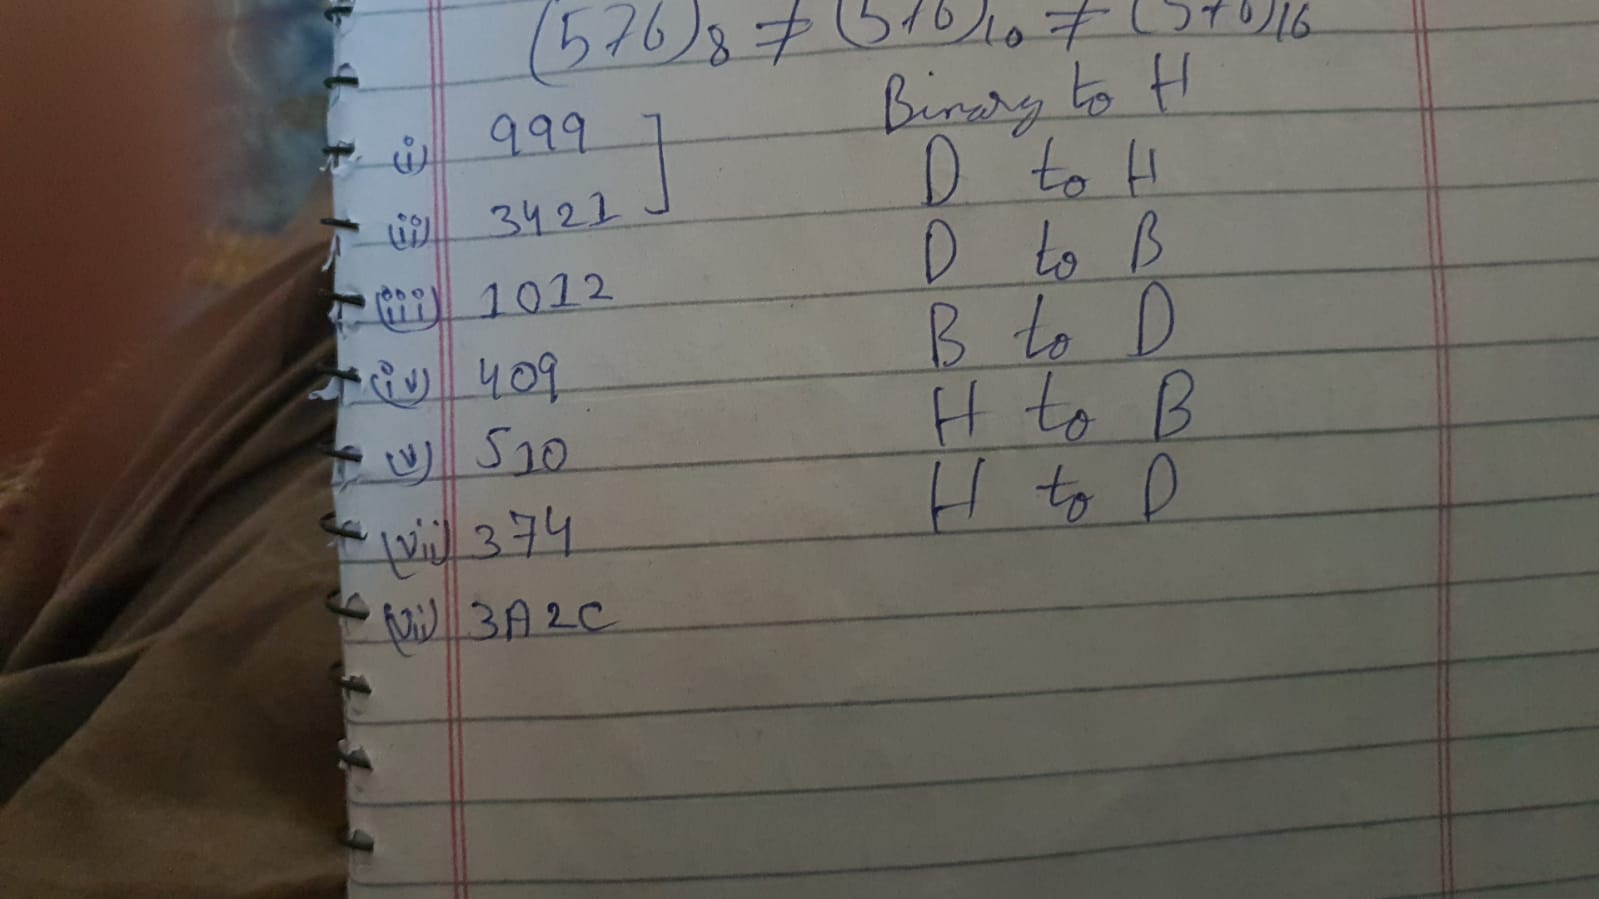 (576)8 ≠ (576)10 ≠ (576)16
(i) 999
(ii) 3421
(iii) 1012
(iv) 409
(v) 510
(vii) 374
(vi) 3A2C
Binary to H
D to H
D to B
B to D
H to B
H to D